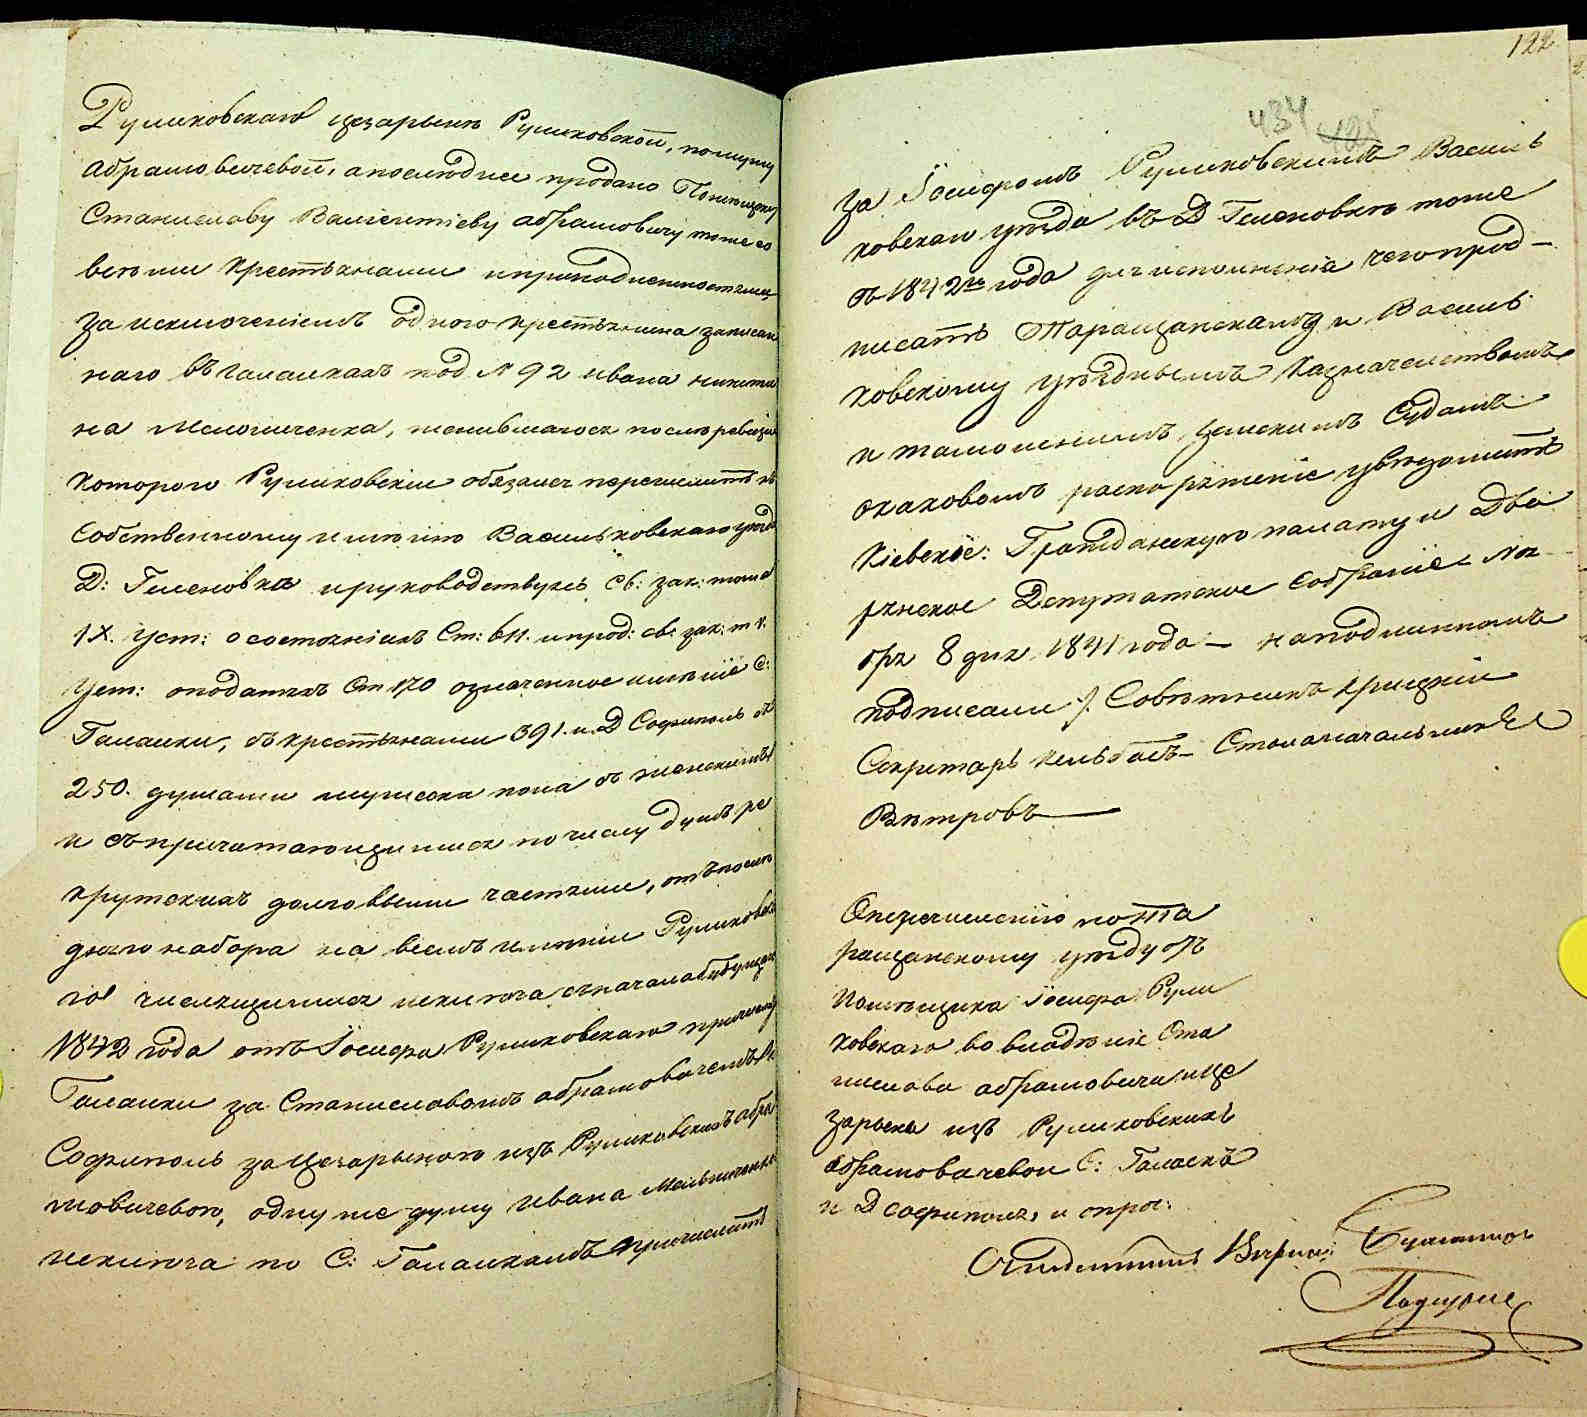 Руликовскаго цезарыни Руликовской, помужу
Абрамовичевой, а последнее продано Помещику
Станиславу Валентіеву Абрамовичу тоже со
всеми крестьянами и принадлежностями
за исключеніемъ одного крестьянина записан
наго въ Галайкахъ под № 92 ивана никити
на Мельниченка, женившагося после ревизіи
котораго Руликовскій обязался перечислить къ
собственному именію Васильковскаго уезда
Д: Геленовка и руководствуясь Св: зак: тома
IX. уст: о состояніяхъ Ст: 611. и прод: св: зак: т V.
уст: о податяхъ Ст 170 означенное именіе С:
Галайки, съ крестьянами 391. и Д Софиполь съ
250. душами мужеска пола съ женскимъ
и съ причитающимися по числу душъ ре
крутскихъ долговыми частями, отъ послѣ
дняго набора на всемъ именіи Руликовска
го числящимися исключа сначала будущаго
1842 года отъ Іосифа Руликовскаго причислить
Галайки за Станиславомъ абрамовичемъ а
Софиполь за Цезарыною изъ Руликовскихъ абра
мовичевою, одну же душу ивана Мельниченка
исключа по С: Галайкамъ причислить
122
434
за Іосифомъ Руликовскимъ Василь
ковскаго уезда въ Д Геленовке тоже
съ 1842го года для исполненія чего пред-
писать Таращанскому и Василь
ковскому уезднымъ Казначействамъ
и тамошнимъ земскимъ Судамъ
о каковомъ распоряженіе уведомить
Кіевскіе: Гражданскую палату и Дво
рянское Депутатское Собраніе Ноя
бря 8 дня 1841 года — на подлинномъ
подписали /. Советникъ Крицкій
Секретарь Кельбасъ — Столоначальникъ
Ветровъ
О перечисленію по Та
ращанскому уезду отъ
помещика Іосифа Рули
ковскаго во владеніе Ста
нислава абрамовича и Це
зарыны изъ Руликовскихъ
абрамовичевой С: Галаекъ
и Д Софиполя, и проч: